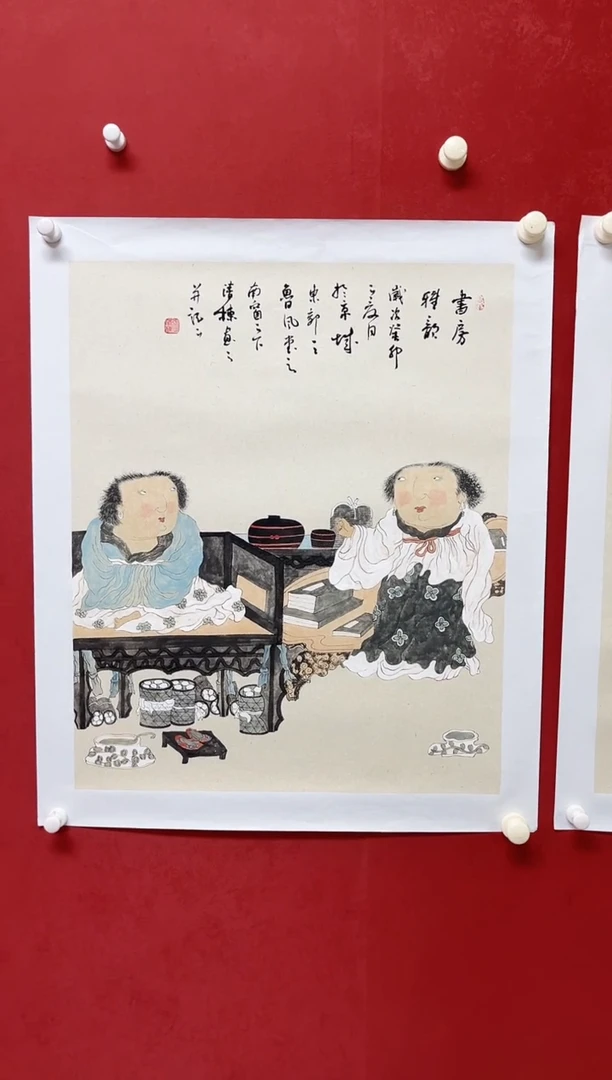 書房
雅韵
歲次癸卯
之夏日
於京城
東郭之
魯風堂之
南窗之下
清棟畫之
并記之